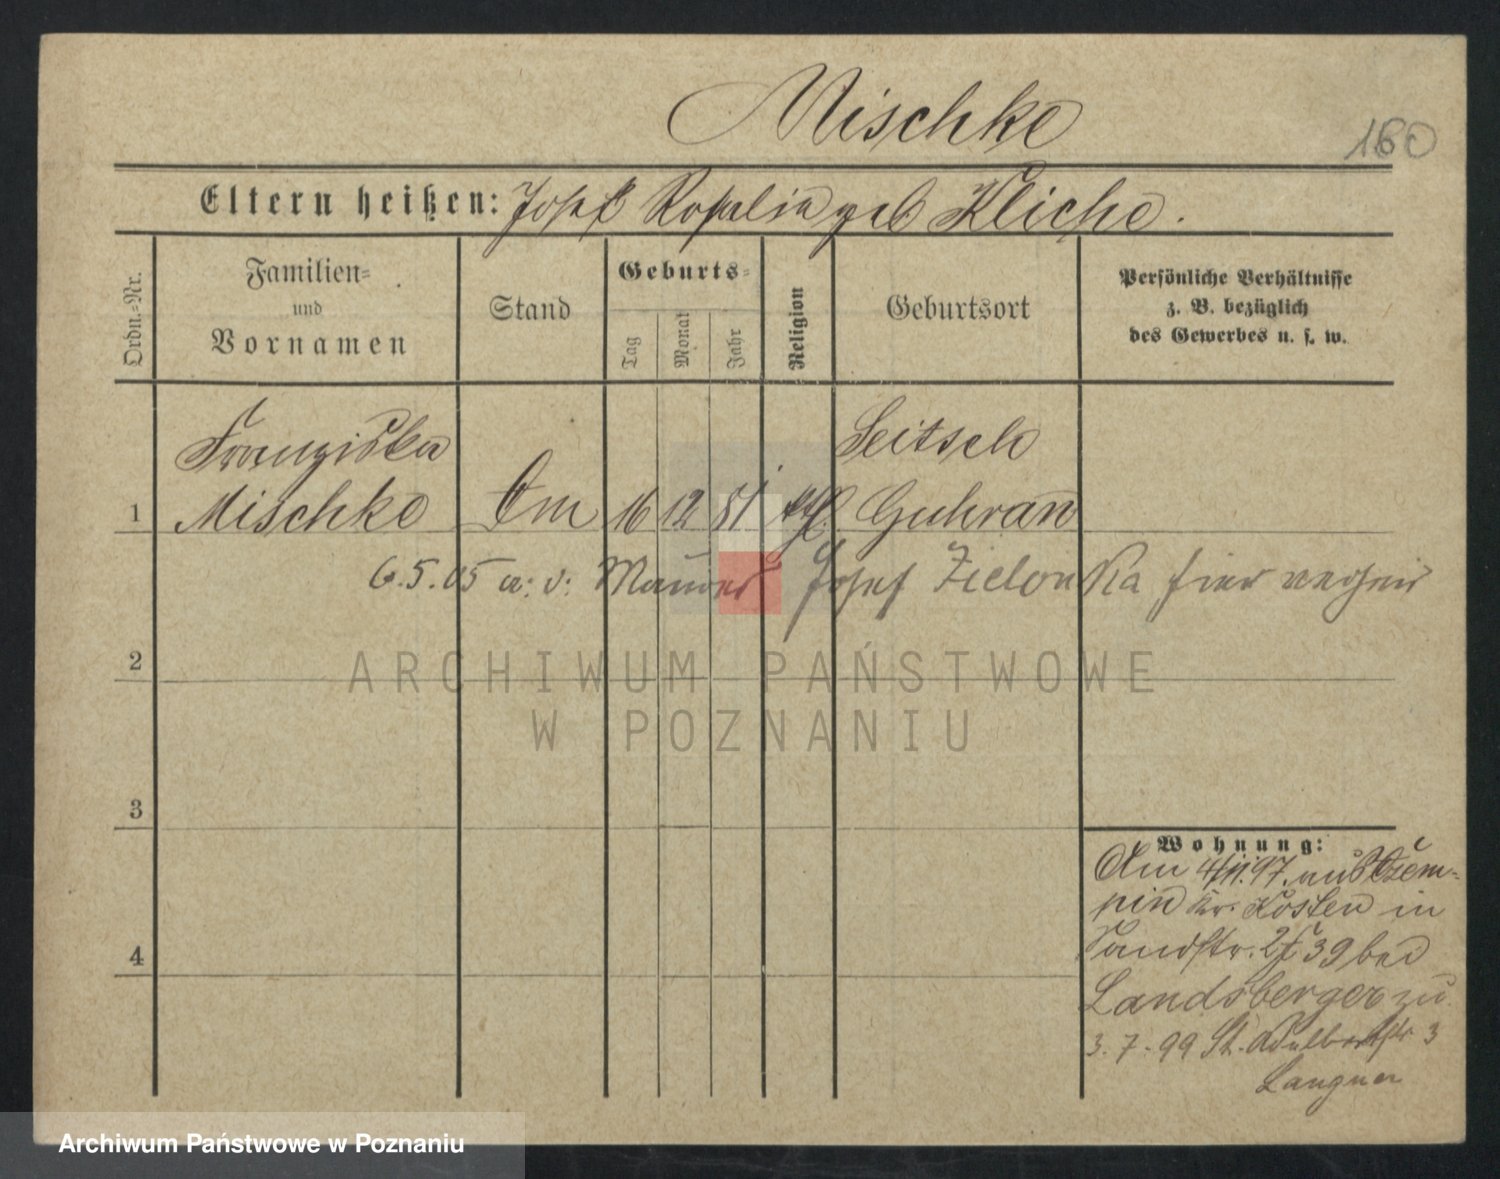 Mischke
160
Eltern heißen: Josef Rosalia geb Kliche.
Ordn.-Nr.
Familien-
und
Vornamen
Stand
Geburts-
Tag
Monat
Jahr
Religion
Geburtsort
Persönliche Verhältnisse
z. B. bezüglich
des Gewerbes u. s. w.
Franziska
Seitsch
1 Mischke 16 12 81 ktl. Guhrau
6.5.05 a: v: Maurer Josef Zielonka hier verheir
2
ARCHIWUM PAŃSTWOWE
W POZNANIU
3
Wohnung:
Am 4/11.97. aus Czem-
pin Kr. Kosten in
Sandstr. 39 bei
Landsberger zu
3.7.99 St. Adalbertstr 3
Langner
4
Archiwum Państwowe w Poznaniu